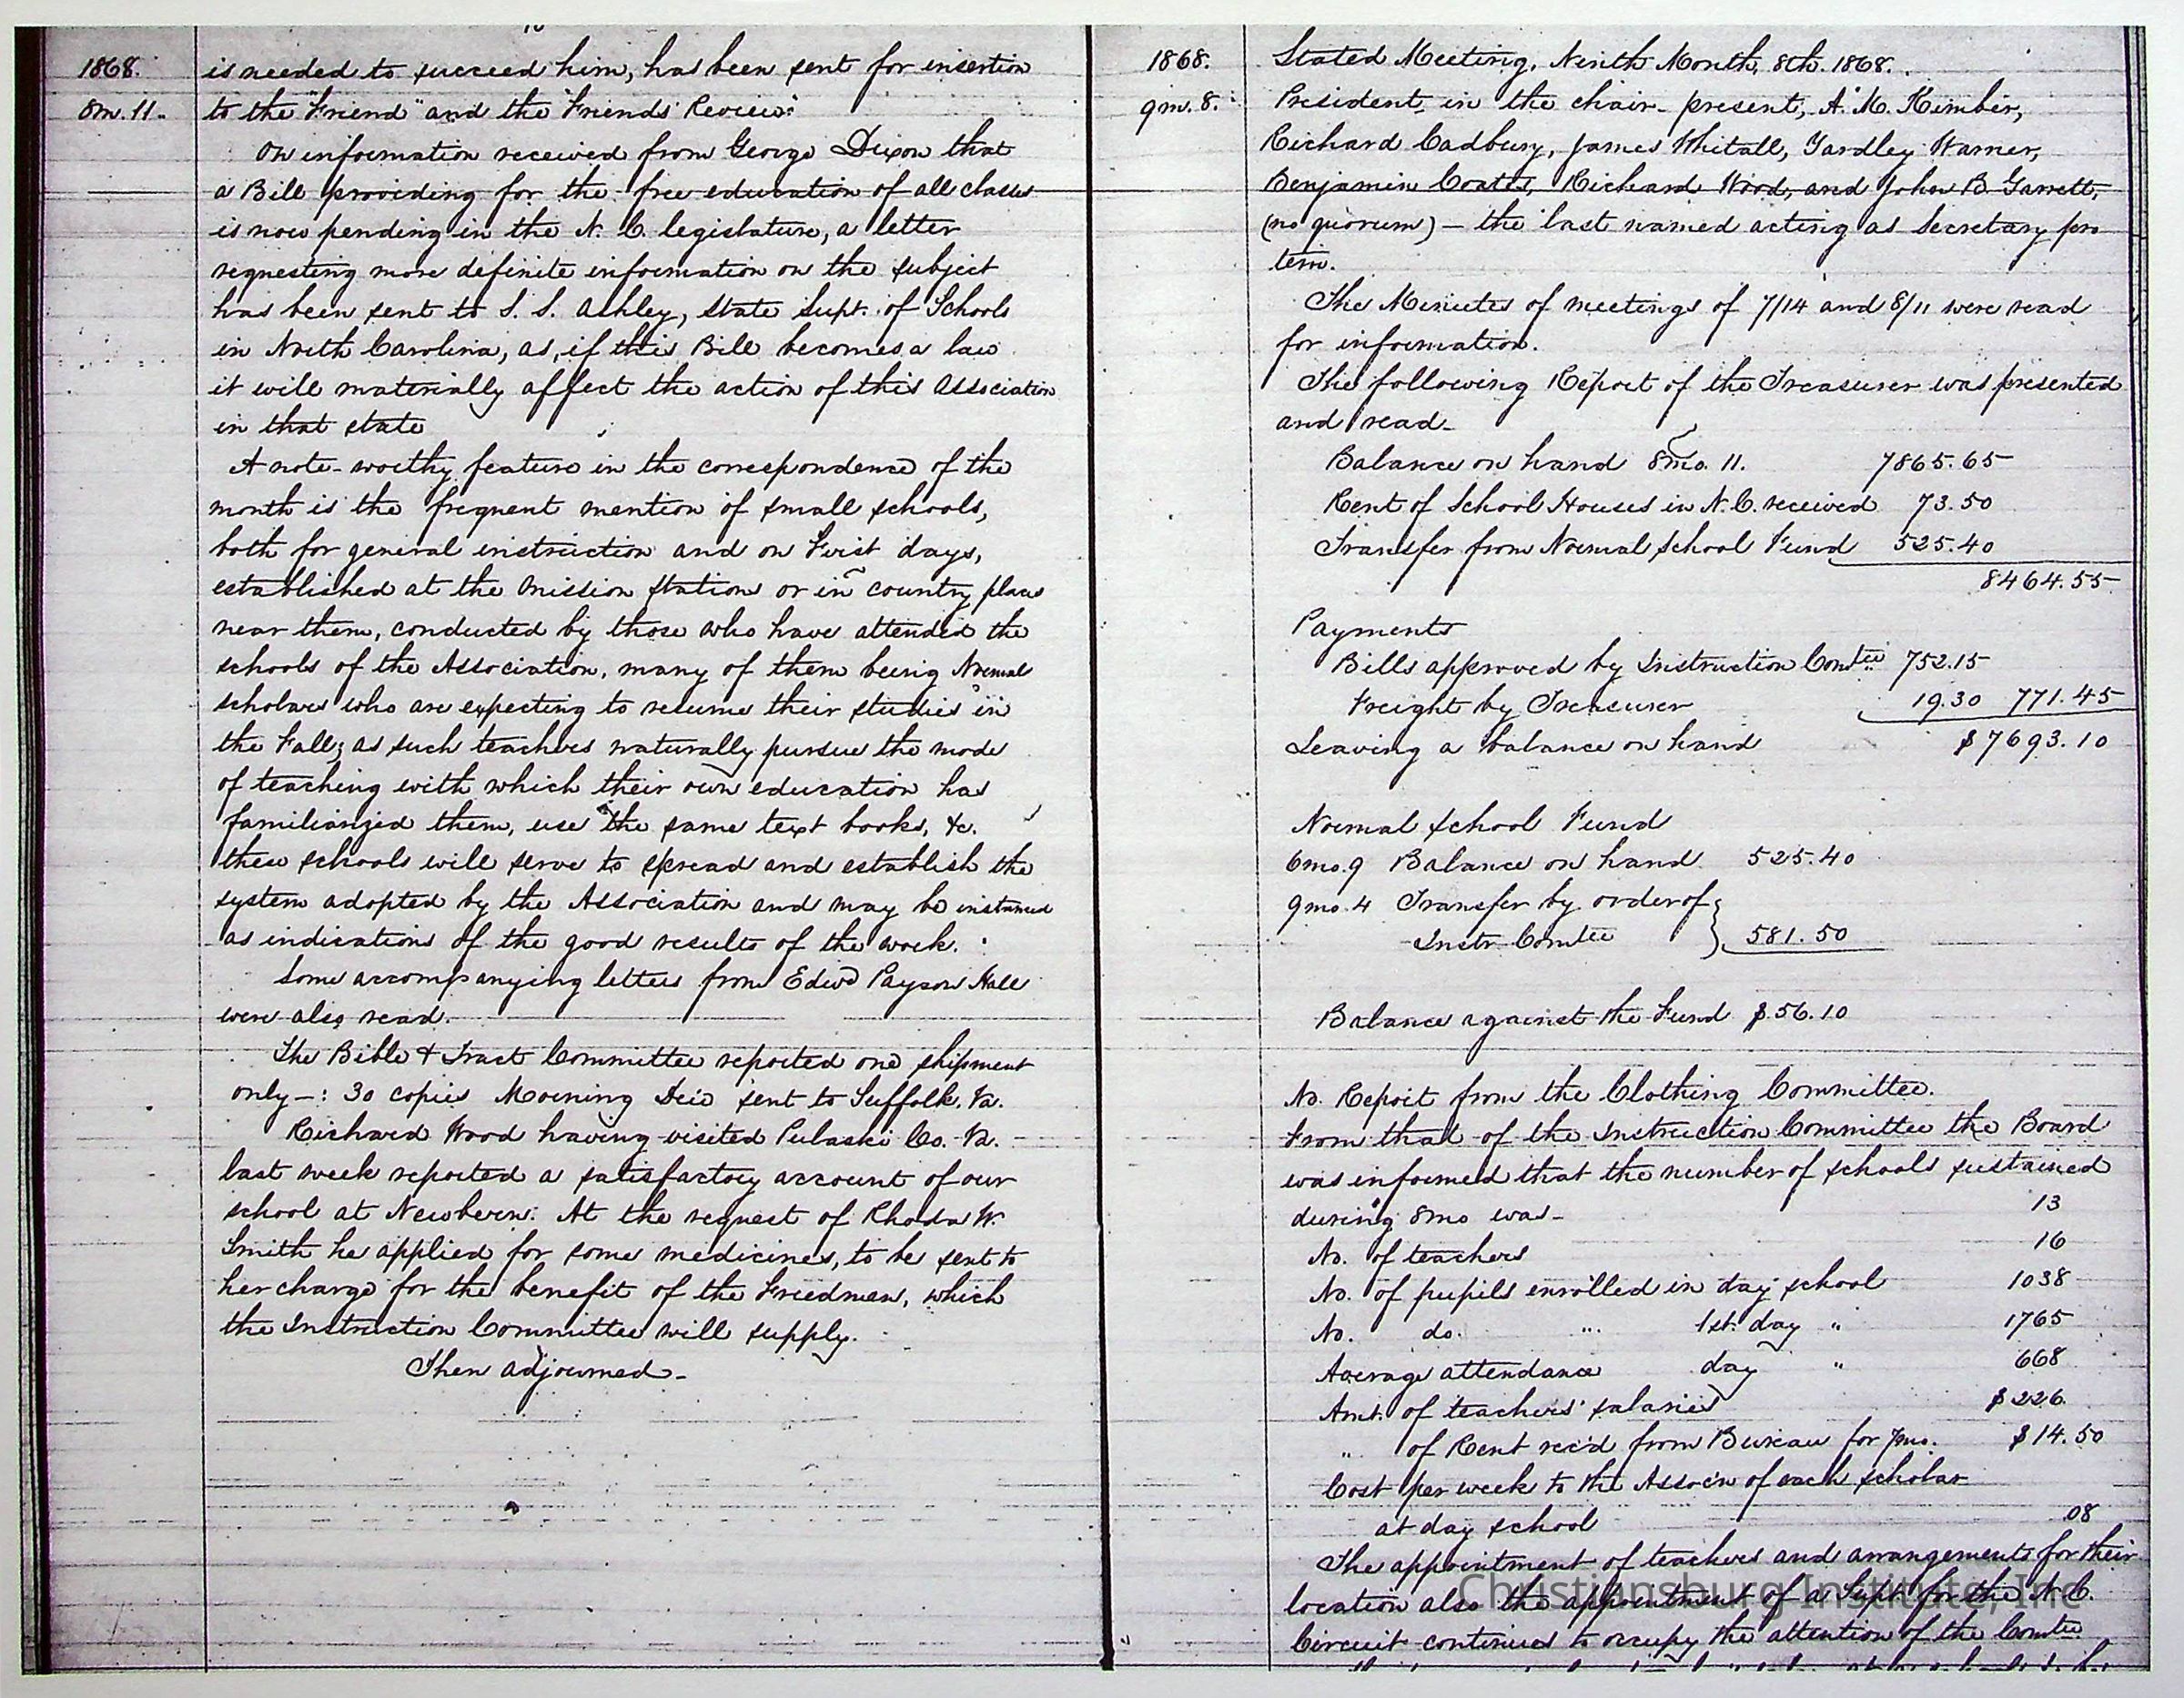 1868.
8m. 11.
is needed to succeed him, has been sent for insertion
to the "Friend" and the "Friends' Review."
On information received from George Dixon that
a Bill providing for the free education of all classes
is now pending in the N. C. legislature, a letter
requesting more definite information on the subject
has been sent to S. S. Ashley, State Supt. of Schools
in North Carolina, as, if this Bill becomes a law
it will materially affect the action of this Association
in that state
A note-worthy feature in the correspondence of the
month is the frequent mention of small schools,
both for general instruction and on First days,
established at the mission stations or in country places
near them, conducted by those who have attended the
schools of the Association, many of them being Normal
scholars who are expecting to resume their studies in
the Fall; as such teachers naturally pursue the mode
of teaching with which their own education has
familiarized them, use the same text books, &c.
these schools will serve to spread and establish the
system adopted by the Association and may be instanced
as indications of the good results of the work.
Some accompanying letters from Edwd Payson Hall
were also read.
The Bible & Tract Committee reported one shipment
only -: 30 copies Morning Dew sent to Suffolk, Va.
Richard Wood having visited Pulaski Co. Va.
last week reported a satisfactory account of our
school at Newbern. At the request of Rhoda W.
Smith he applied for some medicines, to be sent to
her charge for the benefit of the Freedmen, which
the Instruction Committee will supply.
Then adjourned-
1868.
9m. 8.
Stated Meeting, Ninth Month, 8th. 1868.
President in the chair- present, A. M. Kimber,
Richard Cadbury, James Whitall, Yardley Warner,
Benjamin Coates, Richard Wood, and John B. Garrett,
(no quorum) - the last named acting as Secretary pro
tem.
The Minutes of meetings of 7/14 and 8/11 were read
for information.
The following Report of the Treasurer was presented
and read-
Balance on hand 8mo. 11. 7865.65
Rent of School Houses in N. C. received 73.50
Transfer from Normal School Fund 525.40
8464.55
Payments
Bills approved by Instruction Comtee 752.15
Freight by Treasurer 19.30 771.45
Leaving a balance on hand $7693.10
Normal School Fund
6mo. 9 Balance on hand 525.40
9mo. 4 Transfer by order of
Instr. Comtee 581.50
Balance against the Fund $56.10
No Report from the Clothing Committee.
From that of the Instruction Committee the Board
was informed that the number of schools sustained
during 8mo was- 13
No. of teachers 16
No. of pupils enrolled in day school 1038
No. do. " 1st. day " 1765
Average attendance day " 668
Amt. of teachers' salaries $226.
" of Rent rec'd from Bureau for 7mo. $14.50
Cost per week to the Assoc'n of each scholar
at day school .08
The appointment of teachers and arrangements for their
location also the appointment of a Supt. for the N. C.
Circuit continues to occupy the attention of the Comtee
Christiansburg Institute, Inc